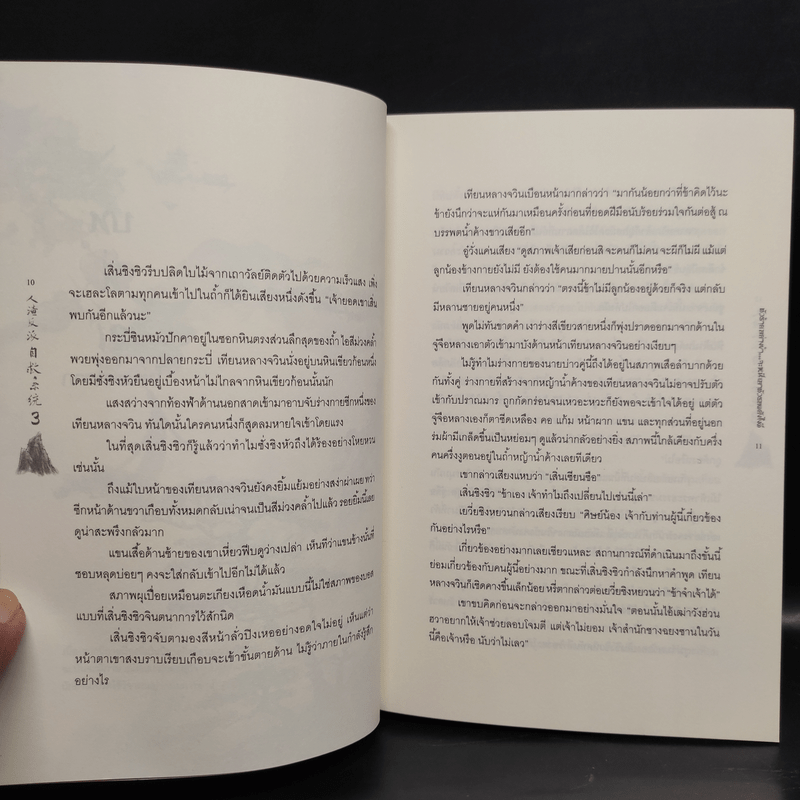 เสิ่นชิงชิวรีบปลิดใบไม้จากเถาวัลย์ติดตัวไปด้วยความเร็วแสง เพิ่ง
จะเฮละโลตามทุกคนเข้าไปในถ้ำก็ได้ยินเสียงหนึ่งดังขึ้น "เจ้ายอดเขาเสิ่น
พบกันอีกแล้วนะ"
กระบี่ซินหมัวปักคาอยู่ในซอกหินตรงส่วนลึกสุดของถ้ำ ไอสีม่วงคล้ำ
พวยพุ่งออกมาจากปลายกระบี่ เทียนหลางจวินนั่งอยู่บนหินเขียวก้อนหนึ่ง
โดยมีซั่งชิงหัวยืนอยู่เบื้องหน้าไม่ไกลจากหินเขียวก้อนนั้นนัก
แสงสว่างจากท้องฟ้าด้านนอกสาดเข้ามาอาบจับร่างกายซีกหนึ่งของ
เทียนหลางจวิน ทันใดนั้นใครคนหนึ่งก็สูดลมหายใจเข้าโดยแรง
ในที่สุดเสิ่นชิงชิวก็รู้แล้วว่าทำไมซั่งชิงหัวถึงได้ร้องอย่างโหยหวน
เช่นนั้น
ถึงแม้ใบหน้าของเทียนหลางจวินยังคงยิ้มแย้มอย่างสง่าผ่าเผย ทว่า
ซีกหน้าด้านขวาเกือบทั้งหมดกลับเน่าจนเป็นสีม่วงคล้ำไปแล้ว รอยยิ้มนี้เลย
ดูน่าสะพรึงกลัวมาก
แขนเสื้อด้านซ้ายของเขาเหี่ยวฟีบดูว่างเปล่า เห็นทีว่าแขนข้างนั้นที่
ชอบหลุดบ่อยๆ คงจะใส่กลับเข้าไปอีกไม่ได้แล้ว
สภาพผุเปื่อยเหมือนตะเกียงเหือดน้ำมันแบบนี้ไม่ใช่สภาพของบอส
แบบที่เสิ่นชิงชิวจินตนาการไว้สักนิด
เสิ่นชิงชิวจับตามองสีหน้าลั่วปิงเหออย่างอดใจไม่อยู่ เห็นแต่ว่า
หน้าตาเขาสงบราบเรียบเกือบจะเข้าขั้นตายด้าน ไม่รู้ว่าภายในกำลังรู้สึก
อย่างไร
10
人渣反派自救系統 3
เทียนหลางจวินเบือนหน้ามากล่าวว่า "มากันน้อยกว่าที่ข้าคิดไว้นะ
ข้ายังนึกว่าจะแห่กันมาเหมือนครั้งก่อนที่ยอดฝีมือนับร้อยร่วมใจกันต่อสู้ ณ
บรรพตน้ำค้างขาวเสียอีก"
อู๋วั่งแค่นเสียง "ดูสภาพเจ้าเสียก่อนสิ จะคนก็ไม่คน จะผีก็ไม่ผี แม้แต่
ลูกน้องข้างกายยังไม่มี ยังต้องใช้คนมากมายปานนั้นอีกหรือ"
เทียนหลางจวินกล่าวว่า "ตรงนี้ข้าไม่มีลูกน้องอยู่ด้วยก็จริง แต่กลับ
มีหลานชายอยู่คนหนึ่ง"
พูดไม่ทันขาดคำ เงาร่างสีเขียวสายหนึ่งก็พุ่งปราดออกมาจากด้านใน
จู๋จือหลางเอาตัวเข้ามาบังด้านหน้าเทียนหลางจวินอย่างเงียบๆ
ไม่รู้ทำไมร่างกายของนายบ่าวคู่นี้ถึงได้อยู่ในสภาพเสื่อลำบากด้วย
กันทั้งคู่ ร่างกายที่สร้างจากหญ้าน้ำค้างของเทียนหลางจวินไม่อาจปรับตัว
เข้ากับปราณมาร ถูกกัดกร่อนจนเหวอะหวะก็ยังพอจะเข้าใจได้อยู่ แต่ตัว
จู๋จือหลางเองก็ตาซีดเหลือง คอ แก้ม หน้าผาก แขน และทุกส่วนที่อยู่นอก
ร่มผ้ามีเกล็ดขึ้นเป็นหย่อมๆ ดูแล้วน่ากลัวอย่างยิ่ง สภาพนี้ใกล้เคียงกับครึ่ง
คนครึ่งงูตอนอยู่ในถ้ำหญ้าน้ำค้างเลยทีเดียว
เขากล่าวเสียงแหบว่า "เสิ่นเซียนซือ"
เสิ่นชิงชิว "ข้าเอง เจ้าทำไมถึงเปลี่ยนไปเช่นนี้เล่า"
เยวี่ยชิงหยวนกล่าวเสียงเรียบ "ศิษย์น้อง เจ้ากับท่านผู้นี้เกี่ยวข้อง
กันอย่างไรหรือ"
เกี่ยวข้องอย่างมากเลยเชียวแหละ สถานการณ์ที่ดำเนินมาถึงขั้นนี้
ย่อมเกี่ยวข้องกับคนผู้นี้อย่างมาก ขณะที่เสิ่นชิงชิวกำลังนึกหาคำพูด เทียน
หลางจวินก็เชิดคางขึ้นเล็กน้อย หรี่ตากล่าวต่อเยวี่ยชิงหยวนว่า "ข้าจำเจ้าได้"
เขาขบคิดก่อนจะกล่าวออกมาอย่างมั่นใจ "ตอนนั้นไอ้เฒ่าวังฮ่วน
ฮวาอยากให้เจ้าช่วยลอบโจมตี แต่เจ้าไม่ยอม เจ้าสำนักชางฉยงซานในวัน
นี้คือเจ้าหรือ นับว่าไม่เลว"
11